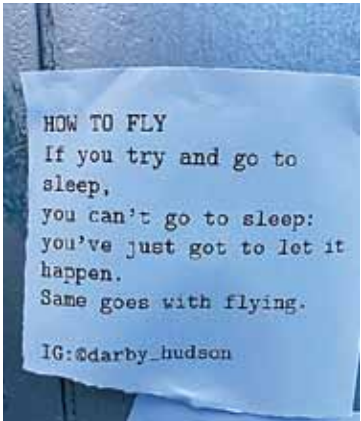 HOW TO FLY
If you try and go to
sleep,
you can't go to sleep:
you've just got to let it
happen.
Same goes with flying.
IG:@darby_hudson